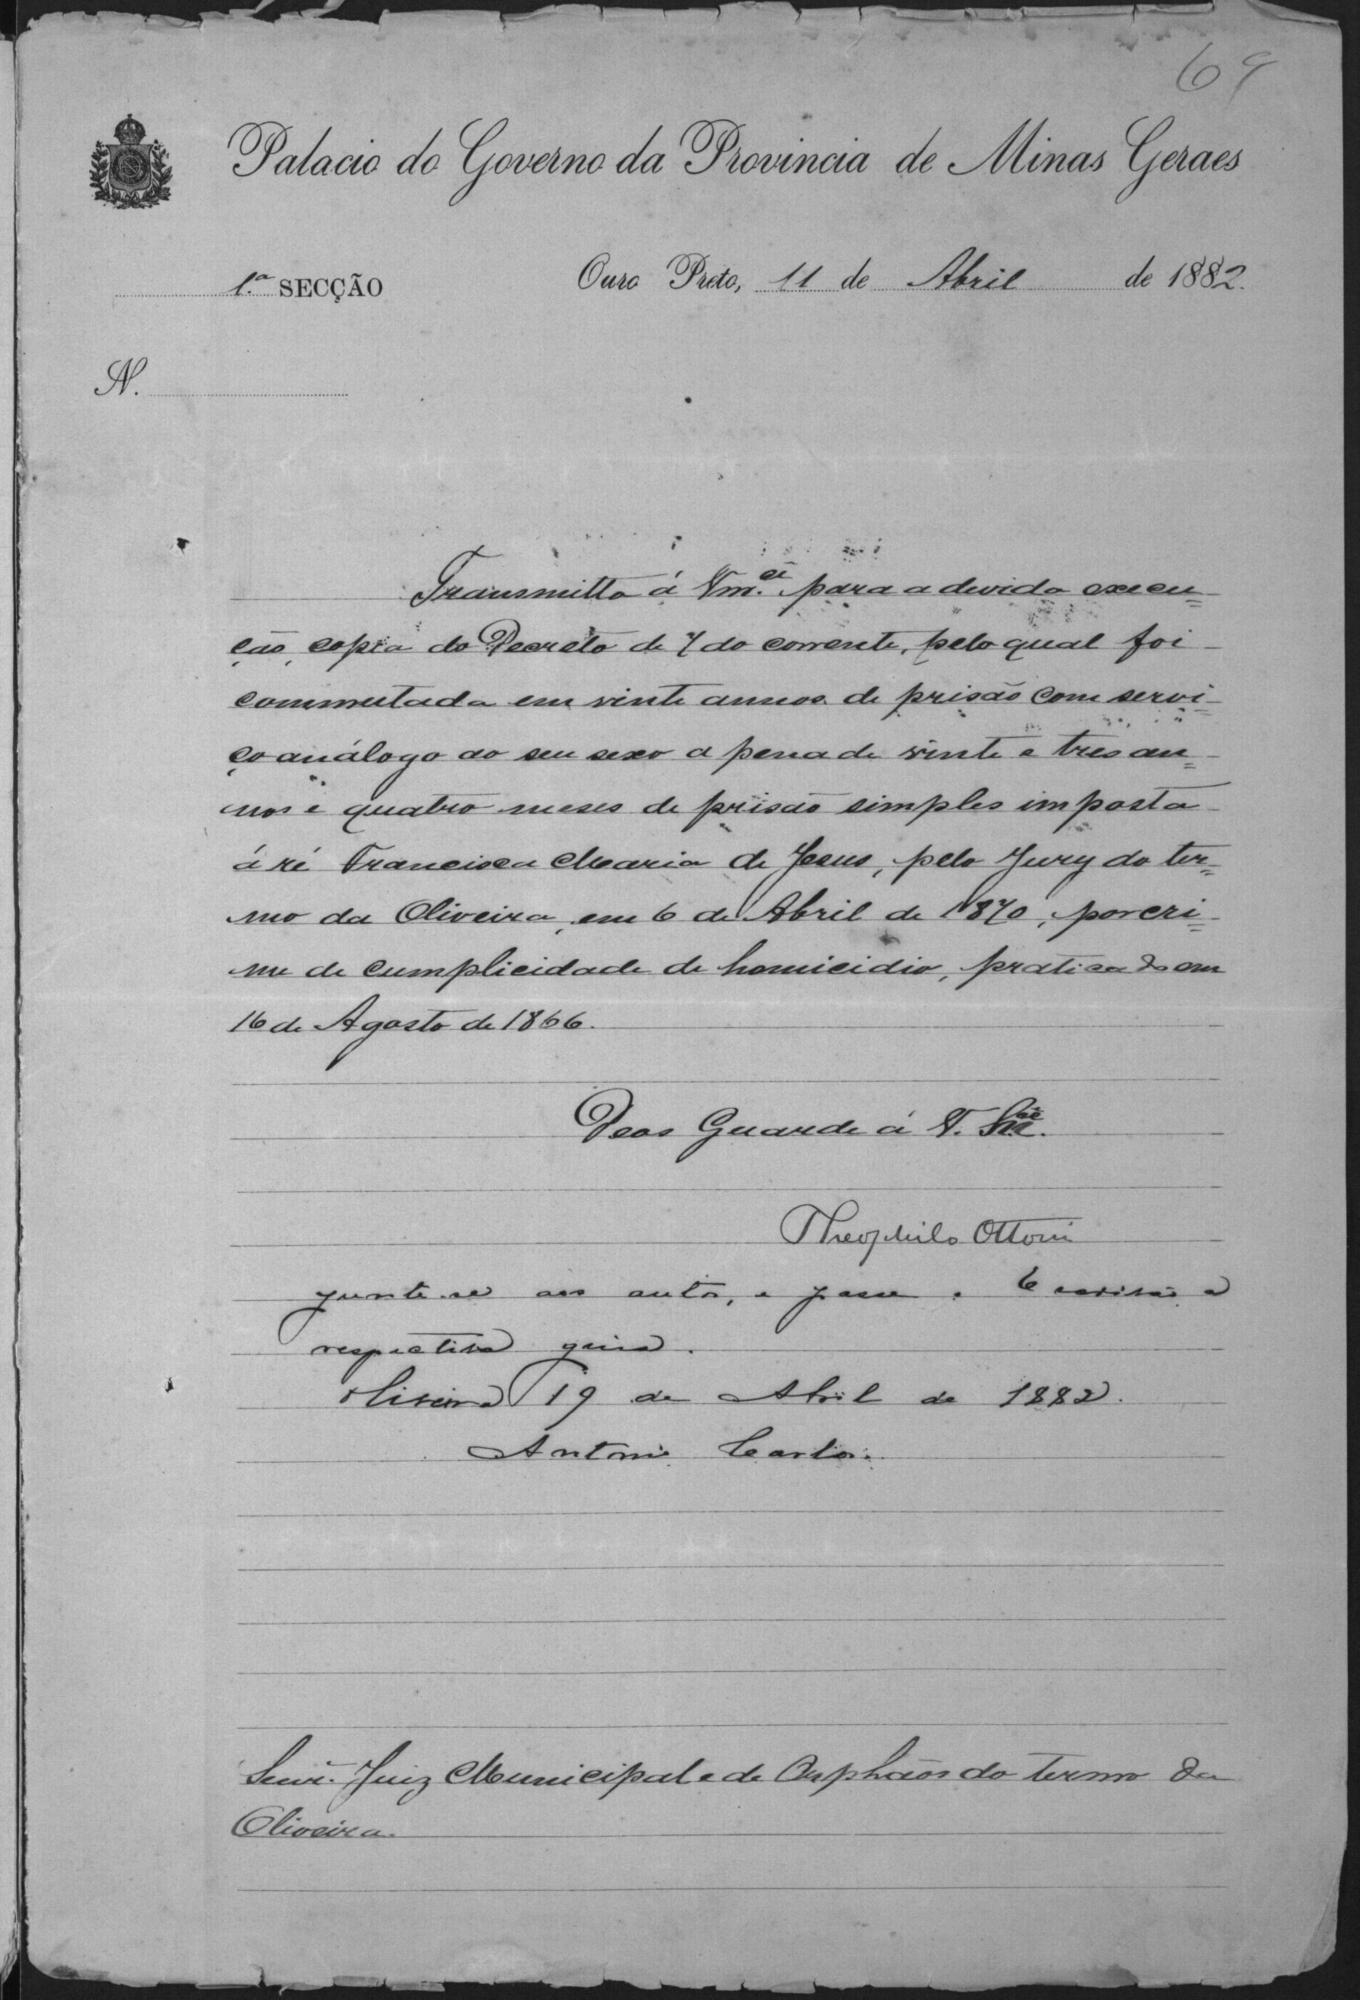 69
Palacio do Governo da Provincia de Minas Geraes
1.ª SECÇÃO
Ouro Preto, 11 de Abril de 1882.
N.
Transmitto á Vm.cê para a devida execu=
ção, copia do Decreto de 7 do corrente, pelo qual foi
commutada em vinte annos de prisão com servi=
ço análogo ao seu sexo a pena de vinte e tres an=
nos e quatro meses de prisão simples imposta
á ré Francisca Maria de Jesus, pelo Jury do ter=
mo da Oliveira, em 6 de Abril de 1870, por cri=
me de cumplicidade de homicidio, praticado em
16 de Agosto de 1866.
Deos Guarde á V.
Theophilo Ottoni
Junte-se aos autos, e passe o Escrivão a
respectiva guia.
Oliveira 19 de Abril de 1882.
Antonio Carlos.
Senr. Juiz Municipal e de Orphãos do termo da
Oliveira.